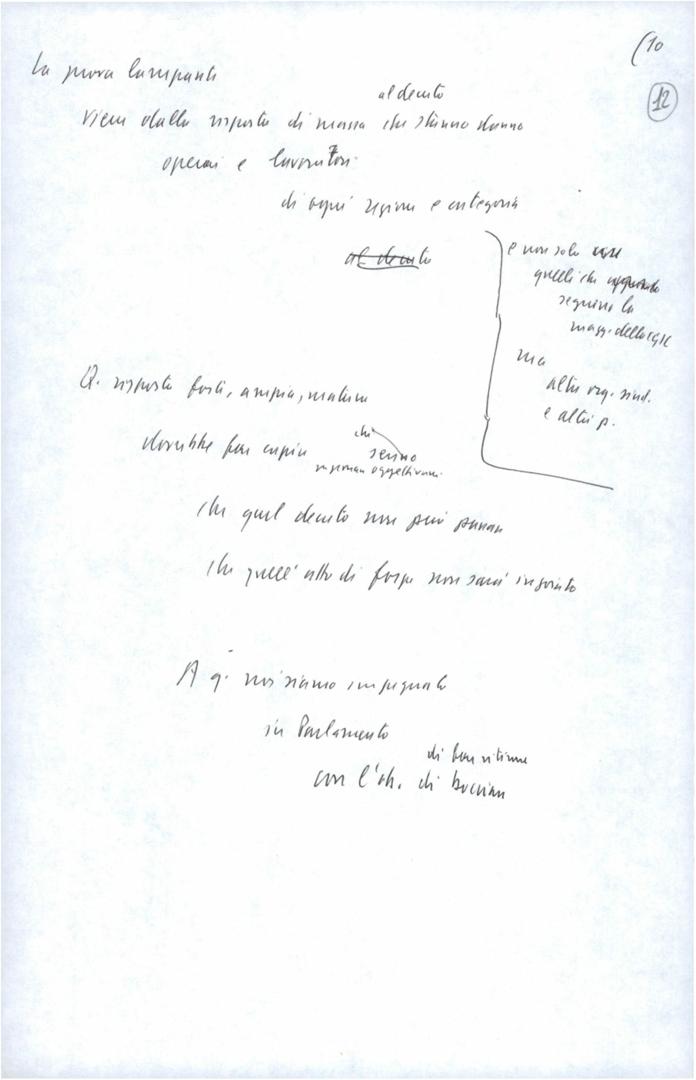 (10
12
La prova lampante
al decreto
viene dalla risposta di massa che stanno danno
operai e lavoratori
di ogni regione e categoria
al decreto
e non solo
quelli che
seguono la
magg. della CGIL
ma
altre org. sind.
e altri p.
Q. risposta forte, ampia, matura
dovrebbe far capire
che
senno
oggettivam.
che quel decreto non può passare
che quell'atto di forza non sarà ingoiato
A q. noi siamo impegnati
in Parlamento
di ben ritirare
con l'ob. di bocciare